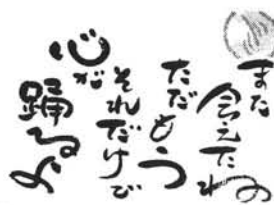 また
会えたね
ただもう
それだけで
心が
踊るよ